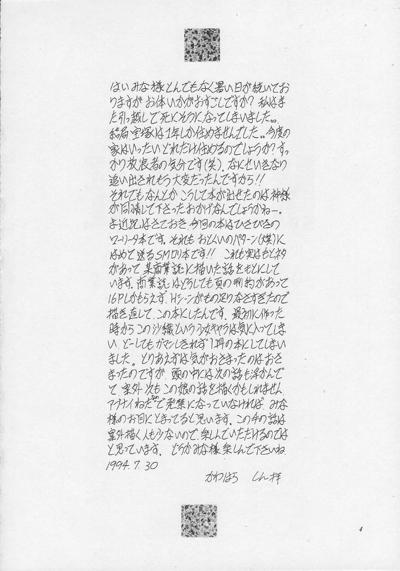 はいみな様とんでもなく暑い日が続いて
おりますがお体いかがおすごしですか? 私は
また引っ越しで死にそうになってしまいました。
結局宝塚は1年しか住めませんでした。今度の
家はいったいどれだけ住めるのでしょうか? すっ
かり放浪者の気分です(笑)。なにせいきなり
追い出されもう大変だったんですから!!
それでもなんとかこうして本が出せたのは神様
が同情して下さったおかげなんでしょうかねー。
近況はさておき今回の本はひさびさの
ロリータ本です。それもおといのパターン(爆)に
はめて送るSMロリ本です!! これも実はもとネタ
があって某商業誌に描いた話をもとにして
います。商業誌はどうしても頁の制約があって
16Pしかもらえず、Hシーンがもの足りなさすぎたので
描き直してこの本にしたんです。最初に作った
時からこの沙織という少女キャラは気に入ってしま
い どーしてもガマンしきれず1冊の本にしてしまい
ました。とりあえずは気がおさまったのはおさ
まったのですが 頭の中には次の話も浮かんで
て 案外次もこの娘の話を描くかもしれません
で発禁になっていなければ、みな
様のお目にとまってると思います。この手の話は
案外描く人も少ないので、楽しんでいただけるのでは
と思っています。どうかみな様楽しんで下さいね
1994.7.30
かわはら しん 拝
4